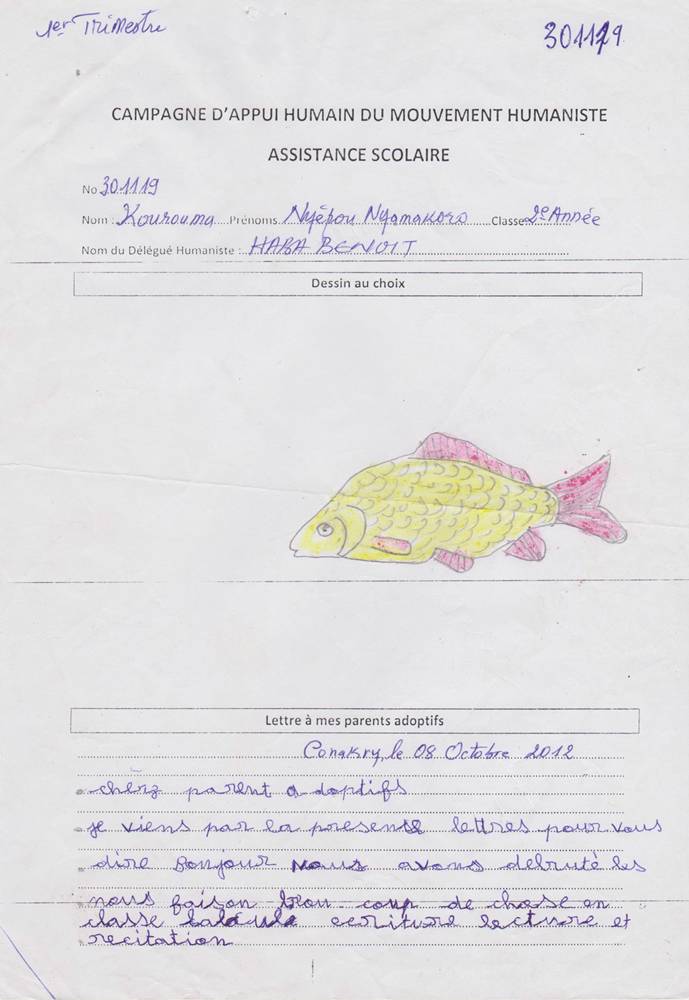 1er Trimestre
301119
CAMPAGNE D'APPUI HUMAIN DU MOUVEMENT HUMANISTE
ASSISTANCE SCOLAIRE
No 301119
Nom : Kourouma Prénoms Nyèpou Nyamakoro Classe: 2e Année
Nom du Délégué Humaniste : HABA BENOIT
Dessin au choix
Lettre à mes parents adoptifs
Conakry, le 08 Octobre 2012
chèrz parent a doptifs
je viens par la presente lettres pour vous
dire Bonjour Nous avons debruté les
nous faison beou coup de chose en
classe calcule ecriture lecture et
recitation